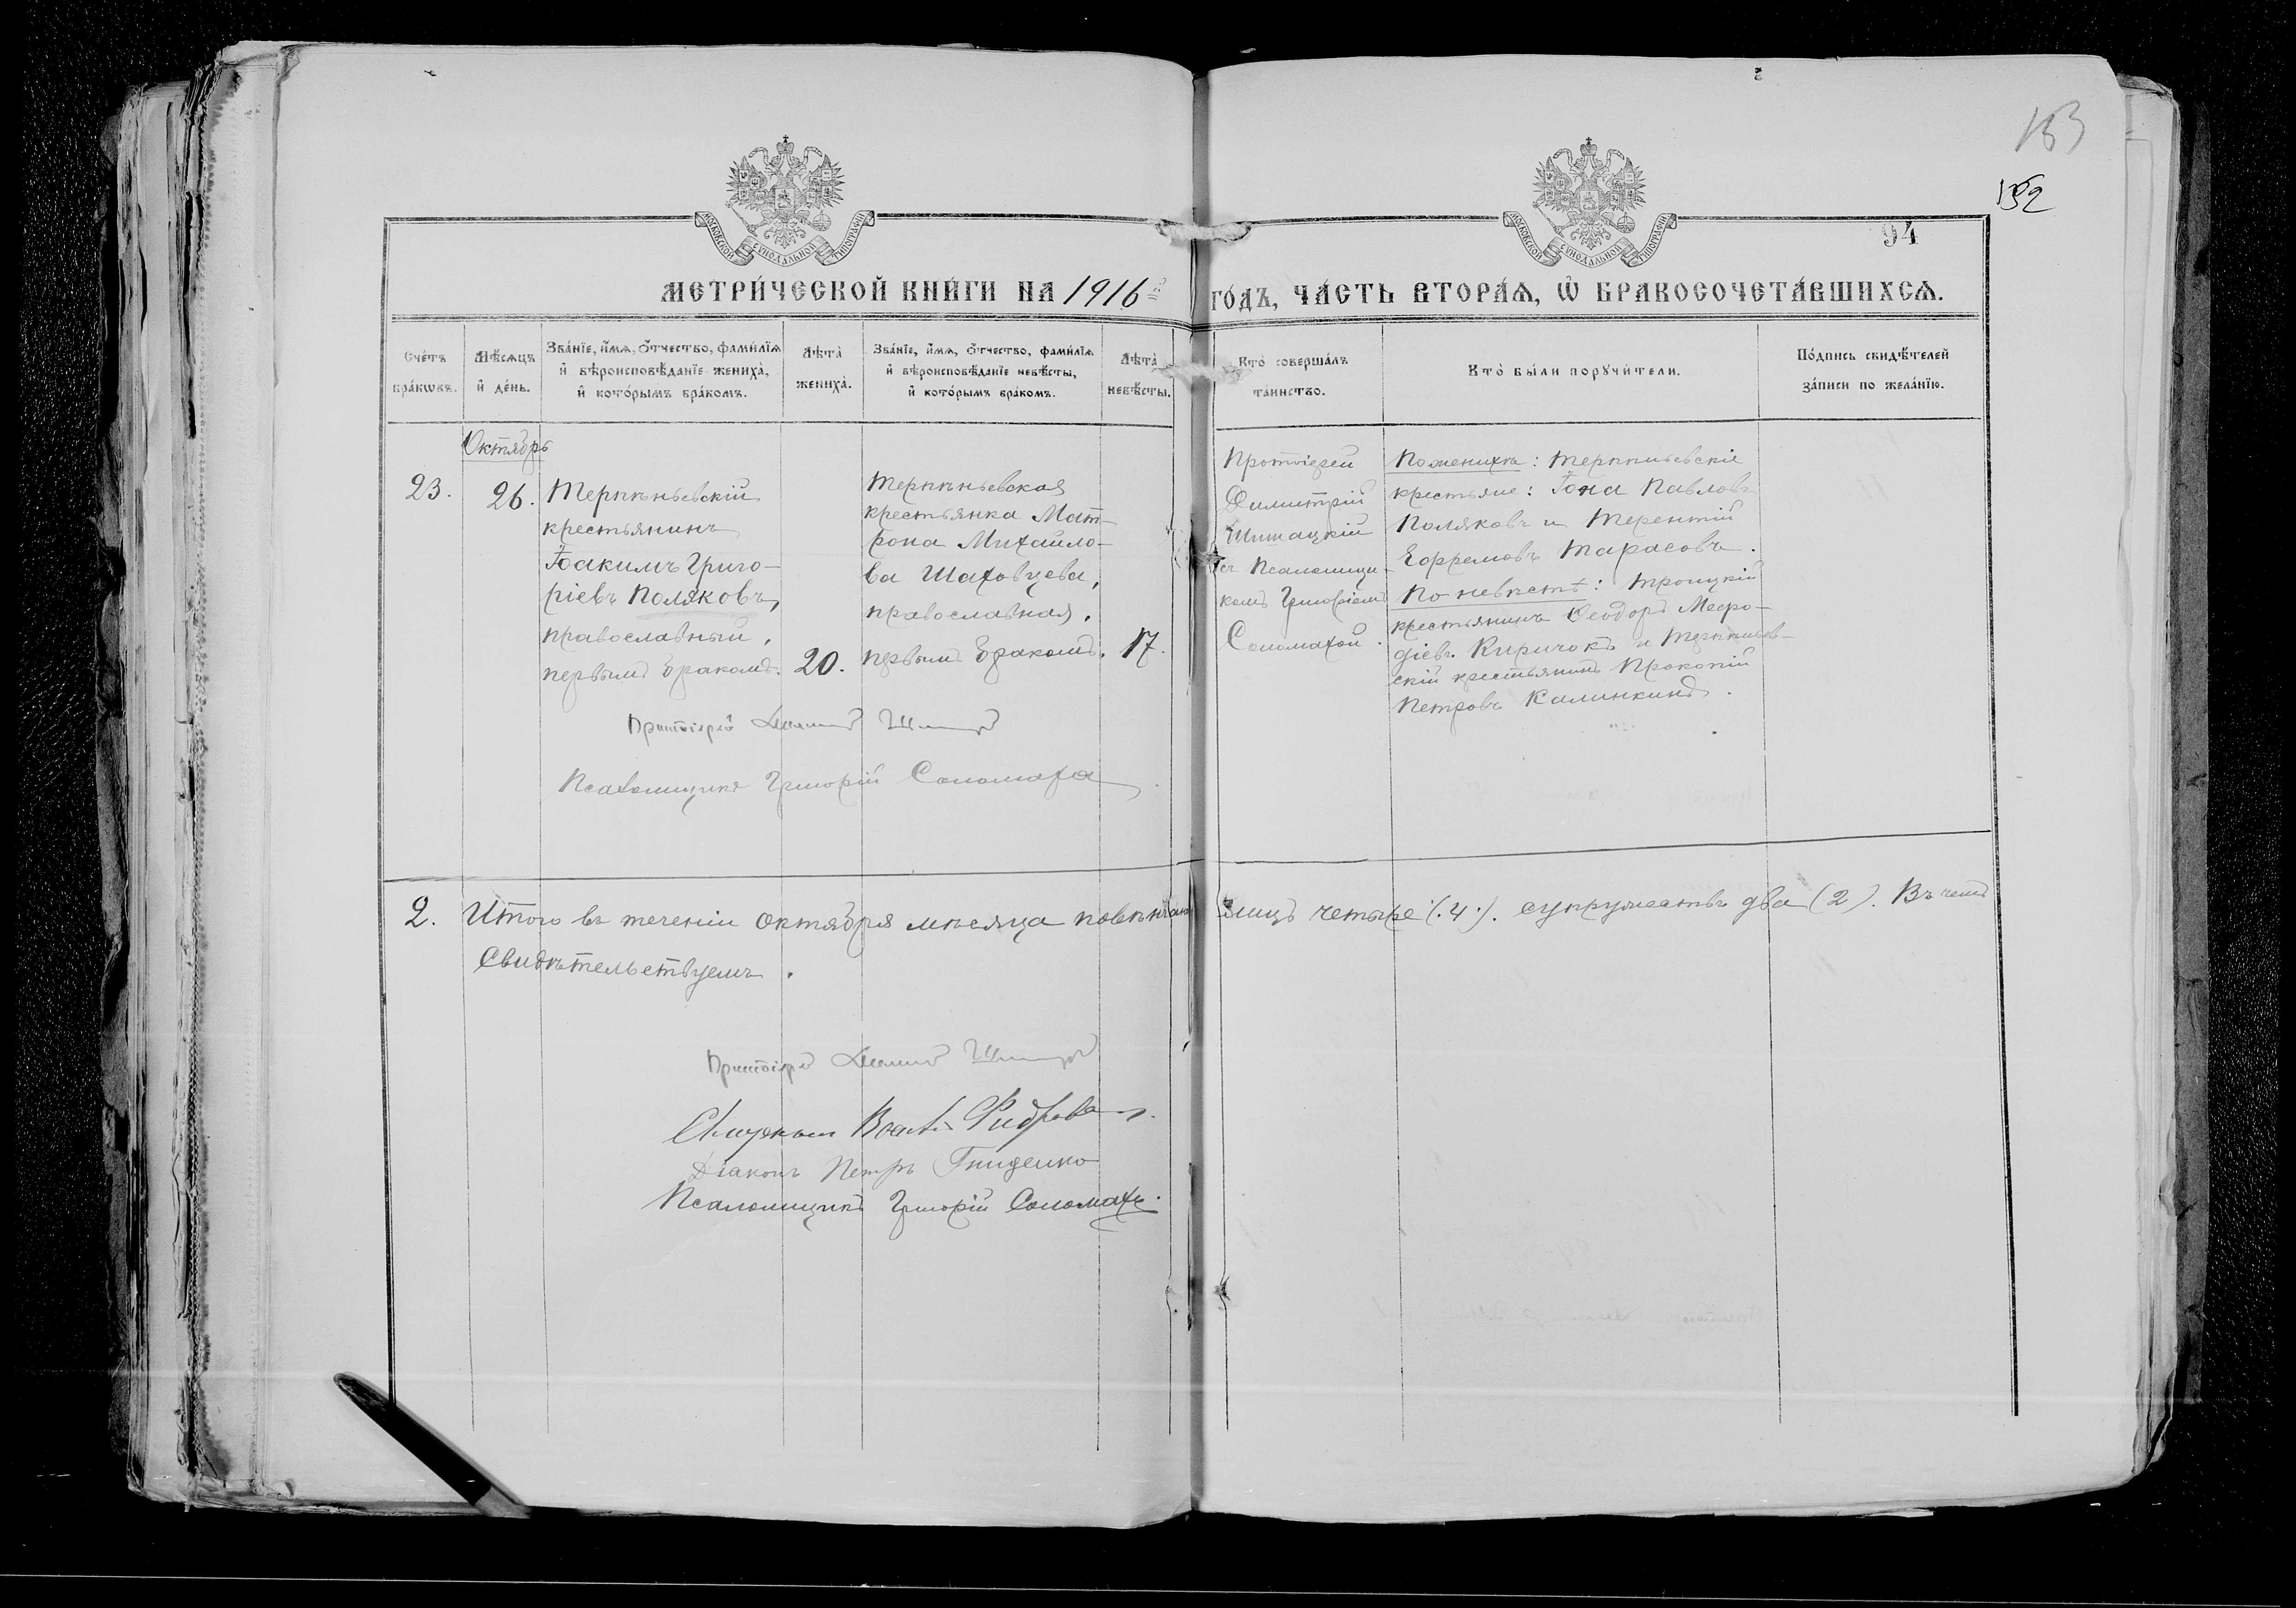 153
152
МОСКОВСКОЙ СѴНОДАЛЬНОЙ ТИПОГРАФІИ
МОСКОВСКОЙ СѴНОДАЛЬНОЙ ТИПОГРАФІИ
94
МЕТРИ́ЧЕСКОЙ КНИ́ГИ НА 1916 го́дъ, ЧА́СТЬ ВТОРА́Ѧ, Ѽ БРАКОСОЧЕТА́ВШИХСѦ.
Сче́тъ
бра́кѡвъ.
Мѣ́сѧцъ
и҆ де́нь.
Зва́нїе, и҆́мѧ, ѻ҆́тчество, фами́лїѧ
и҆ вѣроисповѣ́данїе жениха̀,
и҆ кото́рымъ бра́комъ.
Лѣта̀
жениха̀.
Зва́нїе, и҆́мѧ, ѻ҆́тчество, фами́лїѧ
и҆ вѣроисповѣ́данїе невѣ́сты,
и҆ кото́рымъ бра́комъ.
Лѣта̀
невѣ́сты.
Кто̀ соверша́лъ
та́инство.
Кто̀ бы́ли порꙋчи́тели.
По́дпись свидѣ́телей
за́писи по жела́нїю.
Октябрь
23.
26.
Терпѣньевскій
крестьянинъ
Іоакимъ Григо-
ріевъ Поляковъ,
православный,
первымъ бракомъ.
20.
Терпѣньевская
крестьянка Мат-
рона Михайло-
ва Шаховцева,
православная,
первымъ бракомъ.
17.
Протоіерей
Димитрій
Шишацкій
съ Псаломщи-
комъ Григоріемъ
Соломахой.
По женихѣ: Терпѣньевскіе
крестьяне: Іона Павловъ
Поляковъ и Терентій
Ефремовъ Тарасовъ.
По невѣстѣ: Троицкій
крестьянинъ Феодоръ Мефо-
діевъ Киричокъ и Терпѣньев-
скій крестьянинъ Прокопій
Петровъ Калинкинъ.
Протоіерей Димитрій
Псаломщикъ Григорій Соломаха
2. Итого въ теченіи октября мѣсяца повѣнчано лицъ четыре (.4.). супружествъ два (2). Въ чемъ
Свидѣтельствуемъ.
Протоіерей Димитрій
Діаконъ Петръ Гниденко
Псаломщикъ Григорій Соломаха.